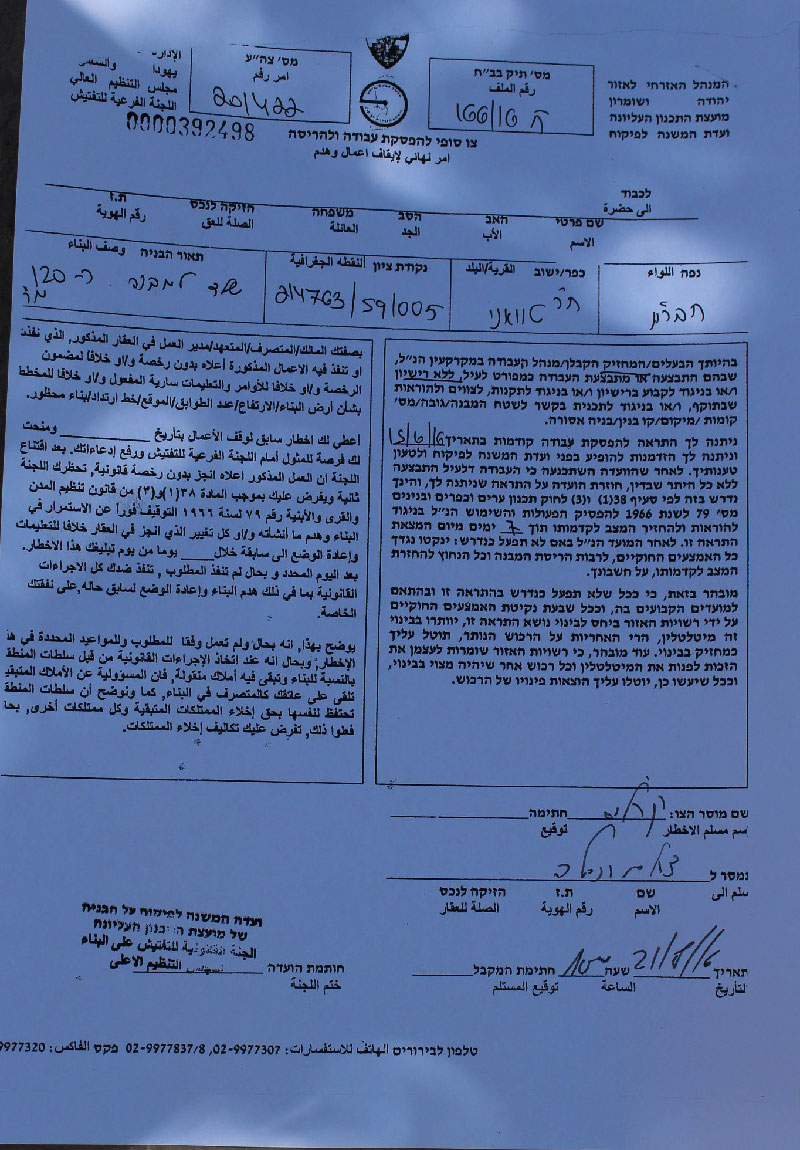 המנהל האזרחי לאזור
יהודה ושומרון
מועצת התכנון העליונה
ועדת המשנה לפיקוח
מס' תיק בב"ח
رقم الملف
ח 166/16
מס' צה"ע
امر رقم
201422
الإدارة
يهودا والسامر
مجلس التنظيم العالي
اللجنة الفرعية للتفتيش
0000392498
צו סופי להפסקת עבודה ולהריסה
امر نهائي لإيقاف اعمال وهدم
לכבוד
الى حضرة
שם פרטי האב הסב משפחה הזיקה לנכס ת.ז
الاسم الأب الجد العائلة الصلة للعق رقم الهوية
נפה اللواء כפר/ישוב القرية/البلد נקודת ציון النقطة الجغرافية תאור הבניה وصف البناء
חברון
ח' טוואני
214763/591005
שלד למבנה כ-120
מ"ר
בהיותך הבעלים/המחזיק הקבלן/מנהל העבודה במקרקעין הנ"ל,
שבהם התבצעה או מתבצעת העבודה כמפורט לעיל, ללא רישיון
ו/או בניגוד לקבוע ברישיון ו/או בניגוד לתקנות, לצווים ולהוראות
שבתוקף, ו/או בניגוד לתכנית בקשר לשטח המבנה/גובה/מס'
קומות /מיקום/קו בנין/בניה אסורה.
ניתנה לך התראה להפסקת עבודה קודמות בתאריך 15/6/16
וניתנה לך הזדמנות להופיע בפני ועדת המשנה לפיקוח ולטעון
טענותיך. לאחר שהוועדה השתכנעה כי העבודה דלעיל התבצעה
ללא כל היתר שבדין, חוזרת הועדה על התראה שניתנה לך, והינך
נדרש בזה לפי סעיף 38(1) ו(3) לחוק תכנון ערים וכפרים ובנינים
מס' 79 לשנת 1966 להפסיק הפעולות והשימוש הנ"ל בניגוד
להוראות ולהחזיר המצב לקדמותו תוך 7 ימים מיום המצאת
התראה זו. לאחר המועד הנ"ל באם לא תפעל כנדרש: ינקטו נגדך
כל האמצעים החוקיים, לרבות הריסת המבנה וכל הנחוץ להחזרת
המצב לקדמותו, על חשבונך.
מובהר בזאת, כי ככל שלא תפעל כנדרש בהתראה זו ובהתאם
למועדים הקבועים בה, וככל שבעת נקיטת האמצעים החוקיים
על ידי רשויות האזור ביחס לבינוי נושא התראה זו, יוותרו בבינוי
זה מיטלטלין, הרי האחריות על הרכוש הנותר, תוטל עליך
כמחזיק בבינוי. עוד מובהר, כי רשויות האזור שומרות לעצמן את
הזכות לפנות את המיטלטלין וכל רכוש אחר שיהיה מצוי בבינוי,
וככל שיעשו כן, יוטלו עליך הוצאות פינויו של הרכוש.
بصفتك المالك/المتصرف/المتعهد/مدير العمل في العقار المذكور, الذي نفذت
او تنفذ فيه الاعمال المذكورة أعلاه بدون رخصة و/او خلافا لمضمون
الرخصة و/او خلافا للأوامر والتعليمات سارية المفعول و/او خلافا للمخطط
بشأن أرض البناء/الارتفاع/عدد الطوابق/الموقع/خط ارتداد/بناء محظور.
أعطي لك اخطار سابق لوقف الأعمال بتاريخ ومنحت
لك فرصة للمثول أمام اللجنة الفرعية للتفتيش ورفع إدعاءاتك. بعد اقتناع
اللجنة ان العمل المذكور اعلاه انجز بدون رخصة قانونية, تحظرك اللجنة
ثانية ويفرض عليك بموجب المادة ٣٨(١)و(٣) من قانون تنظيم المدن
والقرى والأبنية رقم ٧٩ لسنة ١٩٦٦ التوقيف فوراً عن الاستمرار في
البناء وهدم ما أنشأته و/او كل تغيير الذي انجز في العقار خلافا للتعليمات
وإعادة الوضع الى سابقة خلال يوما من يوم تبليغك هذا الاخطار.
بعد اليوم المحدد و بحال لم تنفذ المطلوب , تنفذ ضدك كل الاجراءات
القانونية بما في ذلك هدم البناء وإعادة الوضع لسابق حاله, على نفقتك
الخاصة.
يوضح بهذا, انه بحال ولم تعمل وفقا للمطلوب وللمواعيد المحددة في هذ
الإخطار; وبحال انه عند اتخاذ الإجراءات القانونية من قبل سلطات المنطقة
بالنسبة للبناء وتبقى فيه أملاك منقولة, فان المسؤولية عن الأملاك المتبقية
تلقى على عاتقك كالمتصرف في البناء, كما ونوضح أن سلطات المنطقة
تحتفظ لنفسها بحق إخلاء الممتلكات المتبقية وكل ممتلكات أخرى, بحا
فعلوا ذلك, تفرض عليك تكاليف إخلاء الممتلكات.
שם מוסר הצו: חתימה
اسم مسلم الاخطار توقيع
נמסר ל
سلم الى
שם ת.ז הזיקה לנכס
الاسم رقم الهوية الصلة للعقار
תאריך שעה חתימת המקבל
لتاريخ الساعة توقيع المستلم
ועדת המשנה לפיקוח על הבניה
של מועצת התכנון העליונה
اللجنة الثانوية للتفتيش على البناء
التنظيم الاعلى
חותמת הועדה
ختم اللجنة
טלפון לבירורים الهاتف للاستفسارات: 02-9977307, 02-9977837/8 פקס الفاكس: 9977320